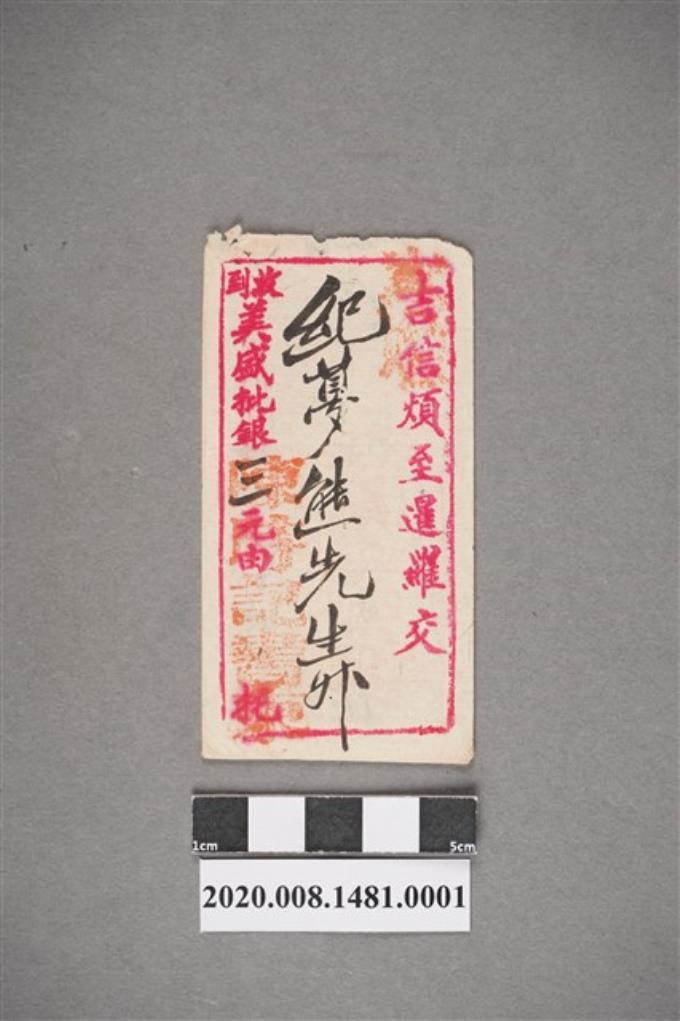 吉信煩至暹羅交
紀夢熊先生升
收到美盛批銀三元由 托
1cm 5cm
2020.008.1481.0001